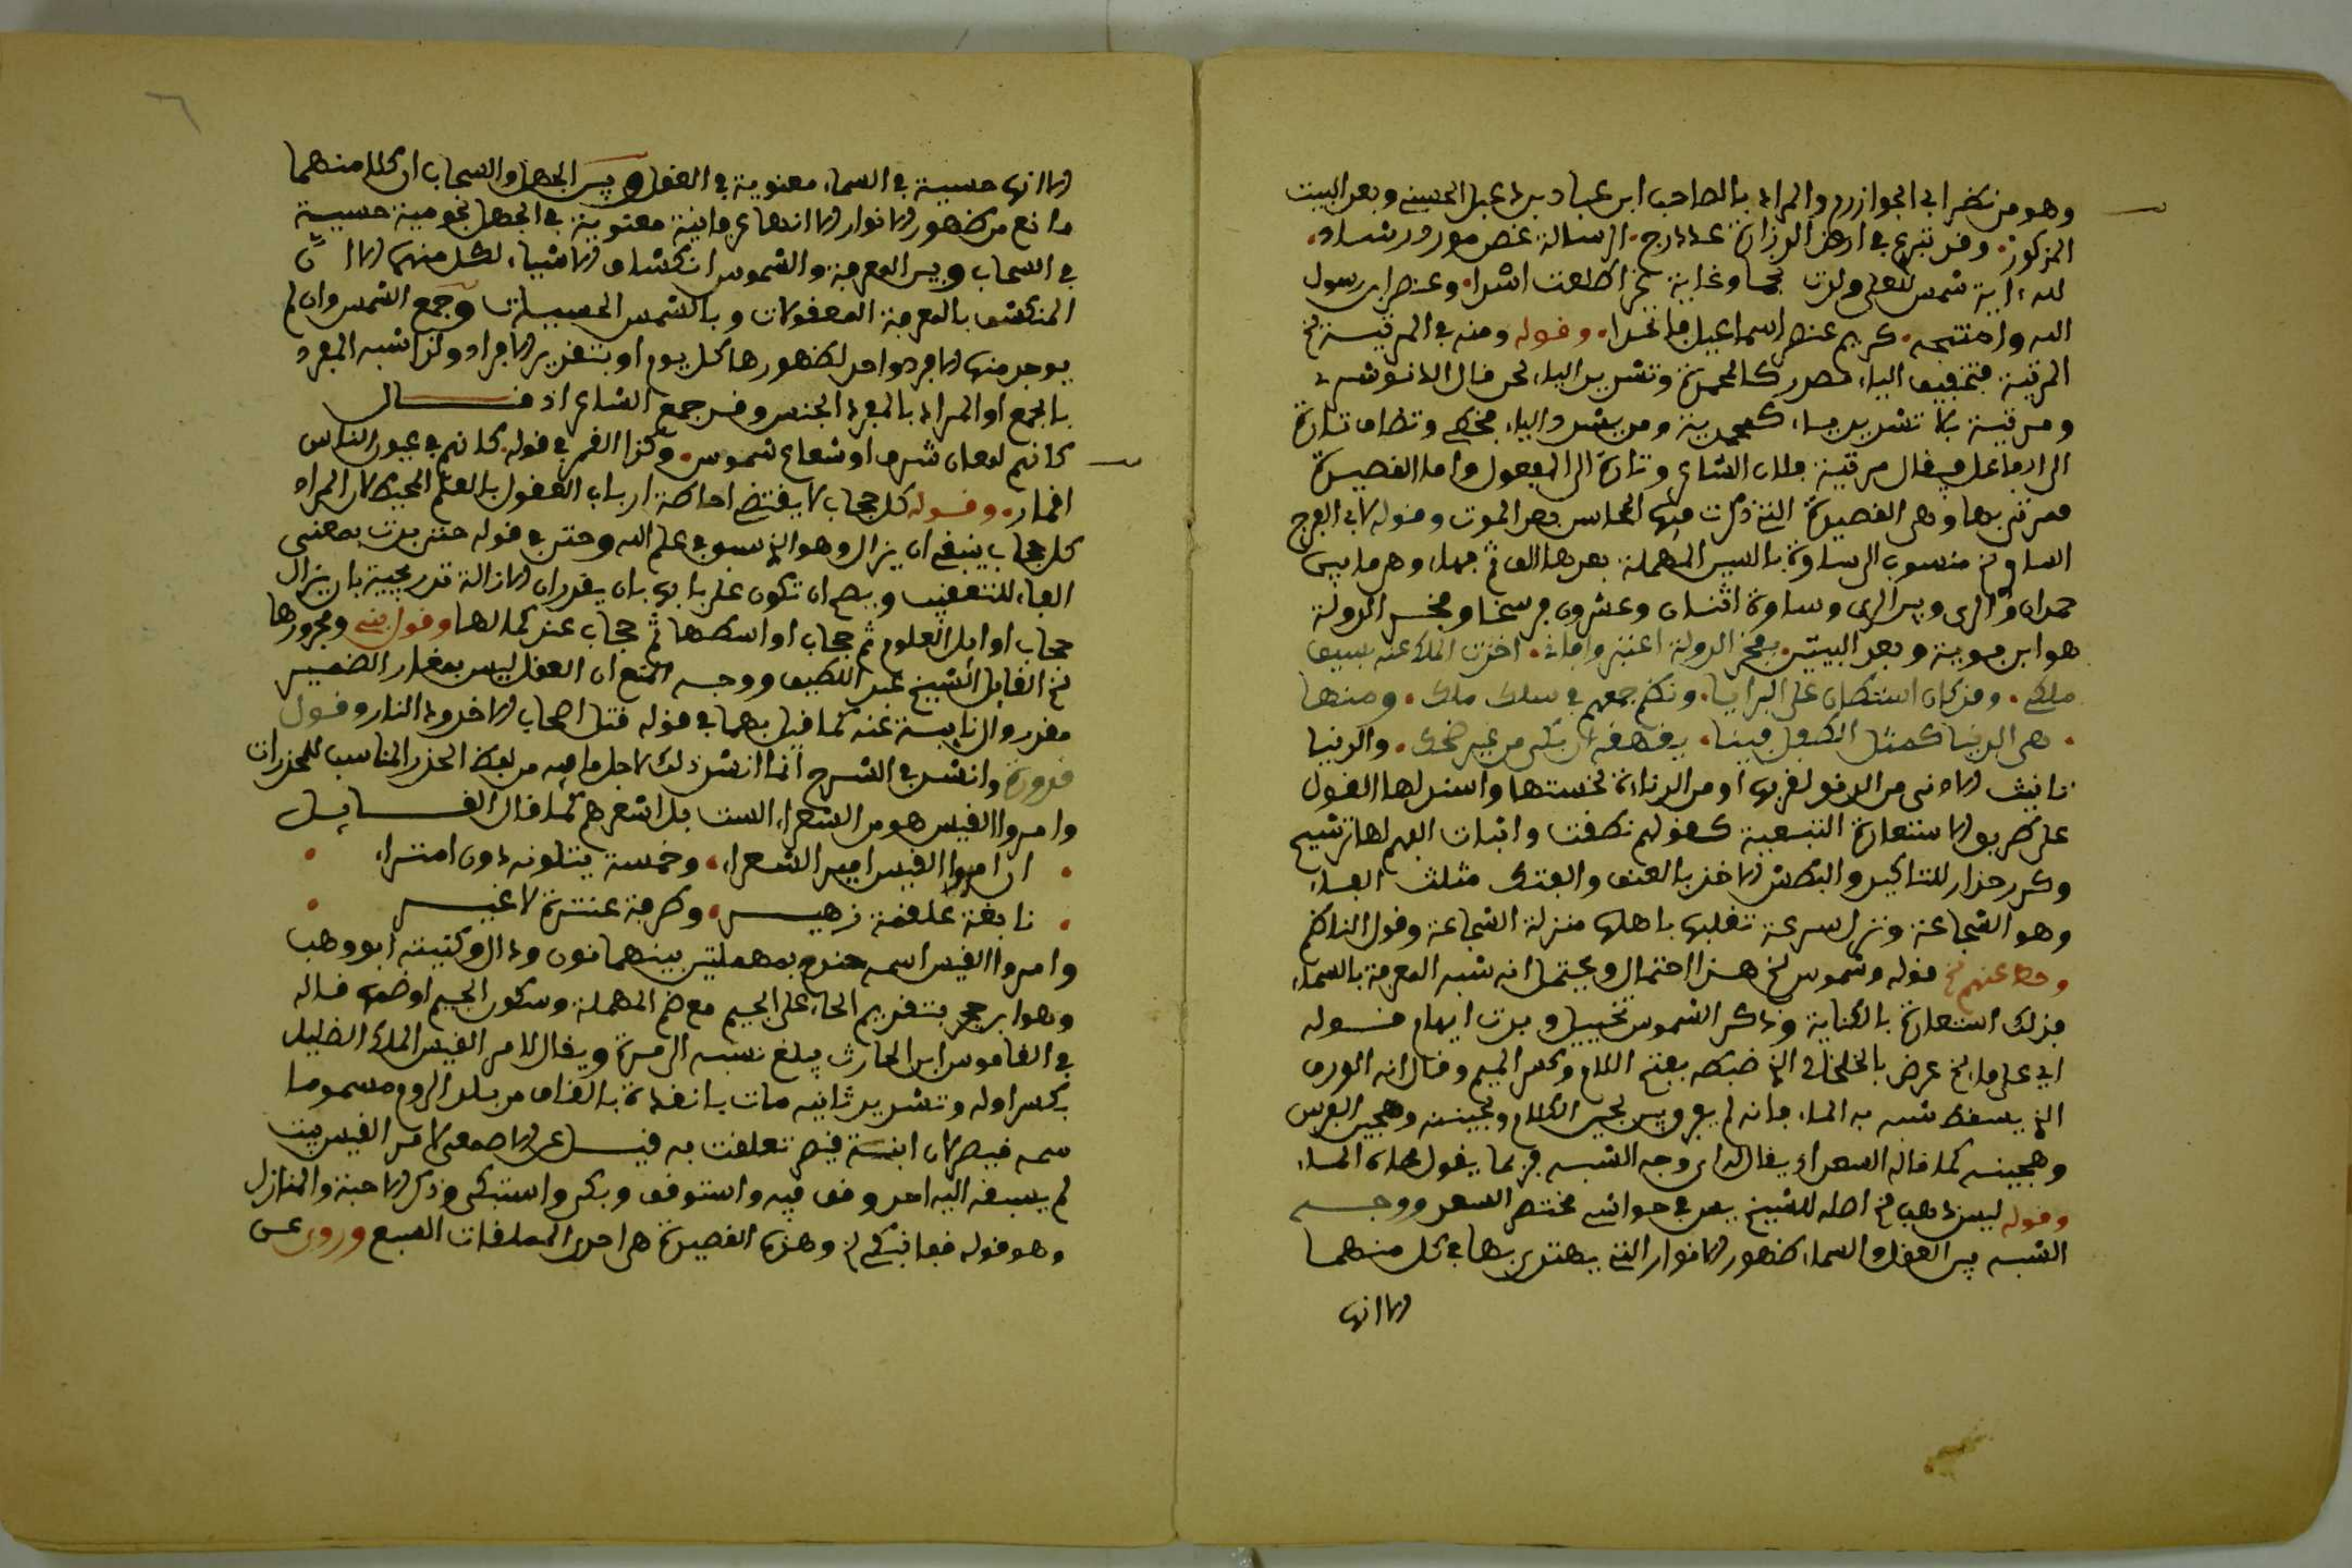 وهو من نظم ابي الجوازرم والمراد بالصاحب ابن عباد بن الحسين وبعد البيت
المذكور. وقد تبرع في ارض الوزارة عادلج. الرسالة غض مورد رشاد.
لله اية شمس للعلى ولدت نجما وغابة عز اطلعت اسدا. وعنصر ابن رسول
الله واختتمه. كريم عنصر اسماعيل فاتحدا. وقوله ومنه في المرثية لخ
المرثية بتخفيف الياء مصدر كالمحمدة وتشديد الياء لحن قال الانوشي
ومرثية بلا تشديد ياء كمحمدية ومن يشدد الياء مخطي وتضاف تارة
الى الفاعل فيقال مرثية فلان الشاعر وتارة الى المفعول واما القصيدة
فمرثى بها وهي القصيدة التي ذكرت فيها المحاسن بعد الموت وقوله لابي الفرج
الساوي لخ منسوب الى ساوة بالسين المهملة بعدها الف ثم جهاء وهي ما بين
حمدان والري وبين الري وساوة اثنان وعشرون فرسخا وفخر الدولة
هو ابن بوية وبعد البيتين بفخر الدولة اعتبروا فاني. اخذت الملك عنه بسيف
ملكي. وقد كان استطال على البرايا. ونظم جمعهم في سلك ملك. ومنها
. هي الدنيا كمثل الطفل فينا. يقهقه ان بكى من غير ضحك. والدنيا
تانيث الادنى من الدنو لقربها او من الدناءة لخستها واسند لها القول
على طريق الاستعارة التبعية كقولهم نطقت واثبات الفم لها ترشيح
وكرر حذار للتاكيد والبطش الاخذ بالعنف والفتك مثلث الفاء
وهو الشجاعة ونزل سرعة تقلبها باهلها منزلة الشجاعة وقول الناظم
وحط عنهم لخ قوله وشموس لخ هذا احتمال ويحتمل انه شبه المعرفة بالسماء
فذلك استعارة بالكناية وذكر الشموس تخييل وبدت ايهام قوله
اي على ما لخ عرض بالخلخالي الذي ضبطه بفتح اللام وكسر الميم وقال انه الورق
الذي يسقط شبه به الماء فانه لم يفرق بين لجين الكلام ولجينه وهجين الفرس
وهجينه كما قاله السعد اذ يقال له اي وجه الشبه فربما يقول صفاء الماء
وقوله ليس ذهب لخ اصله للشيخ يس في حواشي مختصر السعد ووجه
الشبه بين العقل والسماء ظهور الانوار التي يهتدى بها في كل منهما
الا انها
الا انها حسية في السماء معنوية في العقل وبين الجهل والسحاب ان كلا منهما
مانع من ظهور الانوار الا انها عرفانية معنوية في الجهل نجومية حسية
في السحاب وبين المعرفة والشموس انكشاف الاشياء لكل منهما الا ان
المنكشف بالمعرفة المعقولات وبالشمس الحسيات وجمع الشمس وان لم
يوجد منها الا فرد واحد لظهورها كل يوم او بتقدير الافراد ولذا شبه المفرد
بالجمع او المراد بالمفرد الجنس وقد جمع الشاعر اذ قال
كانهم لمعان شرف او شعاع شموس. وكذا القمر في قوله كانهم في عيون الناس
اقمار. وقوله كل حجاب لا يقتضي احاطة ارباب العقول بالعلم المحيط لان المراد
كل حجاب ينبغي ان يزال وهو الذي سبق في علم الله وحتى في قوله حتى بدت بمعنى
الفاء للتعقيب ويصح ان تكون على بابها بان يقدر ان الازالة تدريجية بان يزال
حجاب اوايل العلوم ثم حجاب اواسطها ثم حجاب عند كمالها وقول ومجرورها
لخ القايل الشيخ عبد اللطيف ووجه المنع ان العقل ليس بمغاير الضمير
مقدر وال نايبة عنه كما قيل بهما في قوله قتل اصحاب الاخدود النار وقول
قدورة وانشد في الشرح انما انشد ذلك لاجل ما فيه من لفظ الحذر المناسب للمحذرات
وامروا القيس هو من الشعراء الست بل اشعرهم كما قال القايل
. ان امروا القيس امير الشعراء. وخمسة يتلونه دون امتراء .
. نابغة علقمة زهير. وطرفة عنترة لا غير .
وامروا القيس اسمه حندج بمهملتين بينهما نون ودال وكنيته ابو وهب
وهو ابن حجر بتقديم الحاء على الجيم مع ضم المهملة وسكون الجيم او ضمها قاله
في القاموس ابن الحارث يبلغ نسبه الى مرة ويقال لامرء القيس الملك الضليل
بكسر اوله وتشديد ثانيه مات بانقرة بالقاف من بلد الروم مسموما
سمه قيصر لان ابنة قيصر تعلقت به قيل عن الاصمعي لامرء القيس بيت
لم يسبقه اليه احد وقف فيه واستوقف وبكى واستبكى وذكر الاحبة والمنازل
وهو قوله قفا نبكي لخ وهذه القصيدة هي احدى المعلقات السبع وروى عن